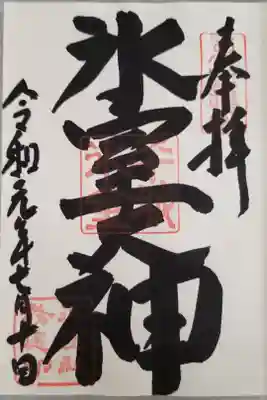 奉拝
氷室大神
令和元年七月十日